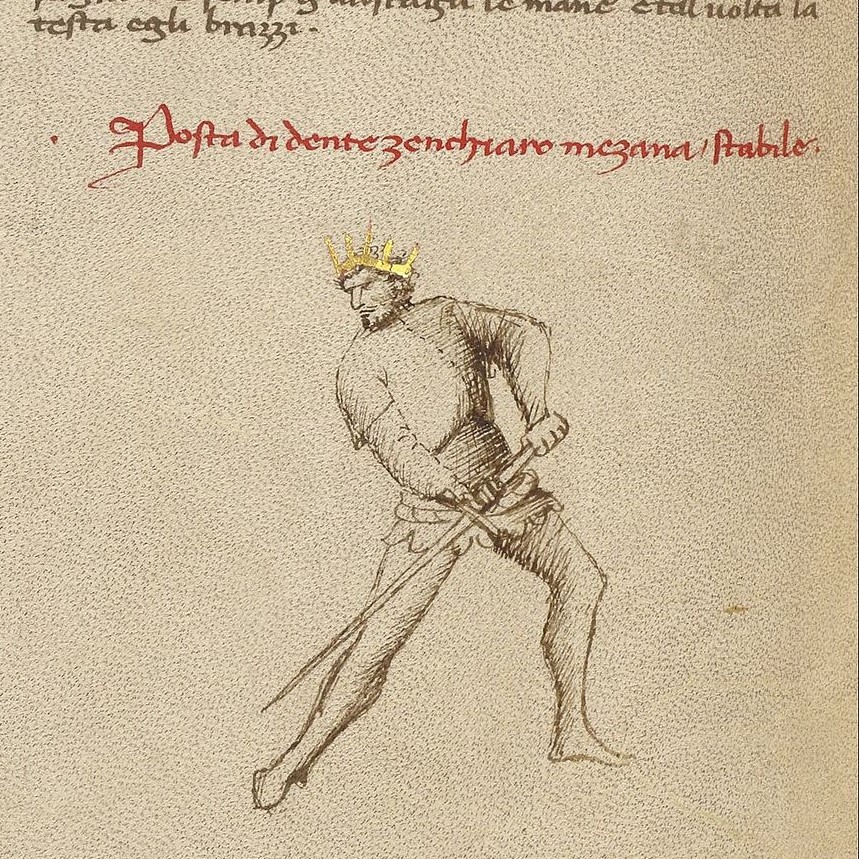 le mane E tal uolta la
testa egli brazzi.
Posta di dente zenchiaro mezana / stabile.